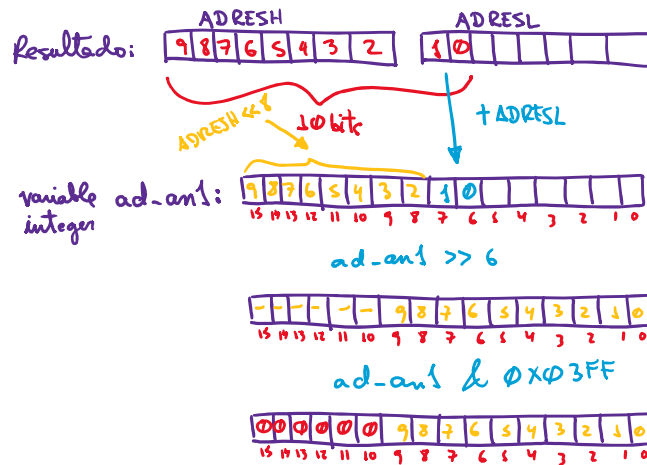 ADRESH ADRESL
Resultado: 9 8 7 6 5 4 3 2 1 0
10 bits
ADRESH << 8
+ ADRESL
variable ad_an1: 9 8 7 6 5 4 3 2 1 0
integer 15 14 13 12 11 10 9 8 7 6 5 4 3 2 1 0
ad_an1 >> 6
- - - - - - 9 8 7 6 5 4 3 2 1 0
15 14 13 12 11 10 9 8 7 6 5 4 3 2 1 0
ad_an1 & 0X03FF
0 0 0 0 0 0 9 8 7 6 5 4 3 2 1 0
15 14 13 12 11 10 9 8 7 6 5 4 3 2 1 0